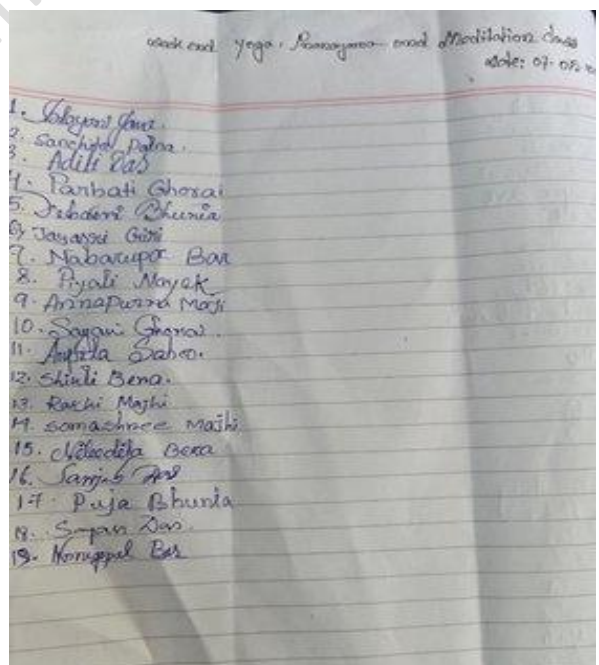 week end yoga, Pranayama and Meditation class
Date: 07-08
1.
2. Sanchita Patra.
3. Aditi Das
4. Parbati Ghorai
5. Bhunia
6) Jayassri Giri
7. Nabarupa Bar
8. Piyali Nayek
9. Annapurna Maji
10. Sayani Ghorai.
11. Sahoo.
12. Shiuli Bera.
13. Rakhi Majhi
14. Somashree Majhi
15. Nibedita Bera
16. Sanjib Das
17. Puja Bhunia
18. Das.
19. Bar